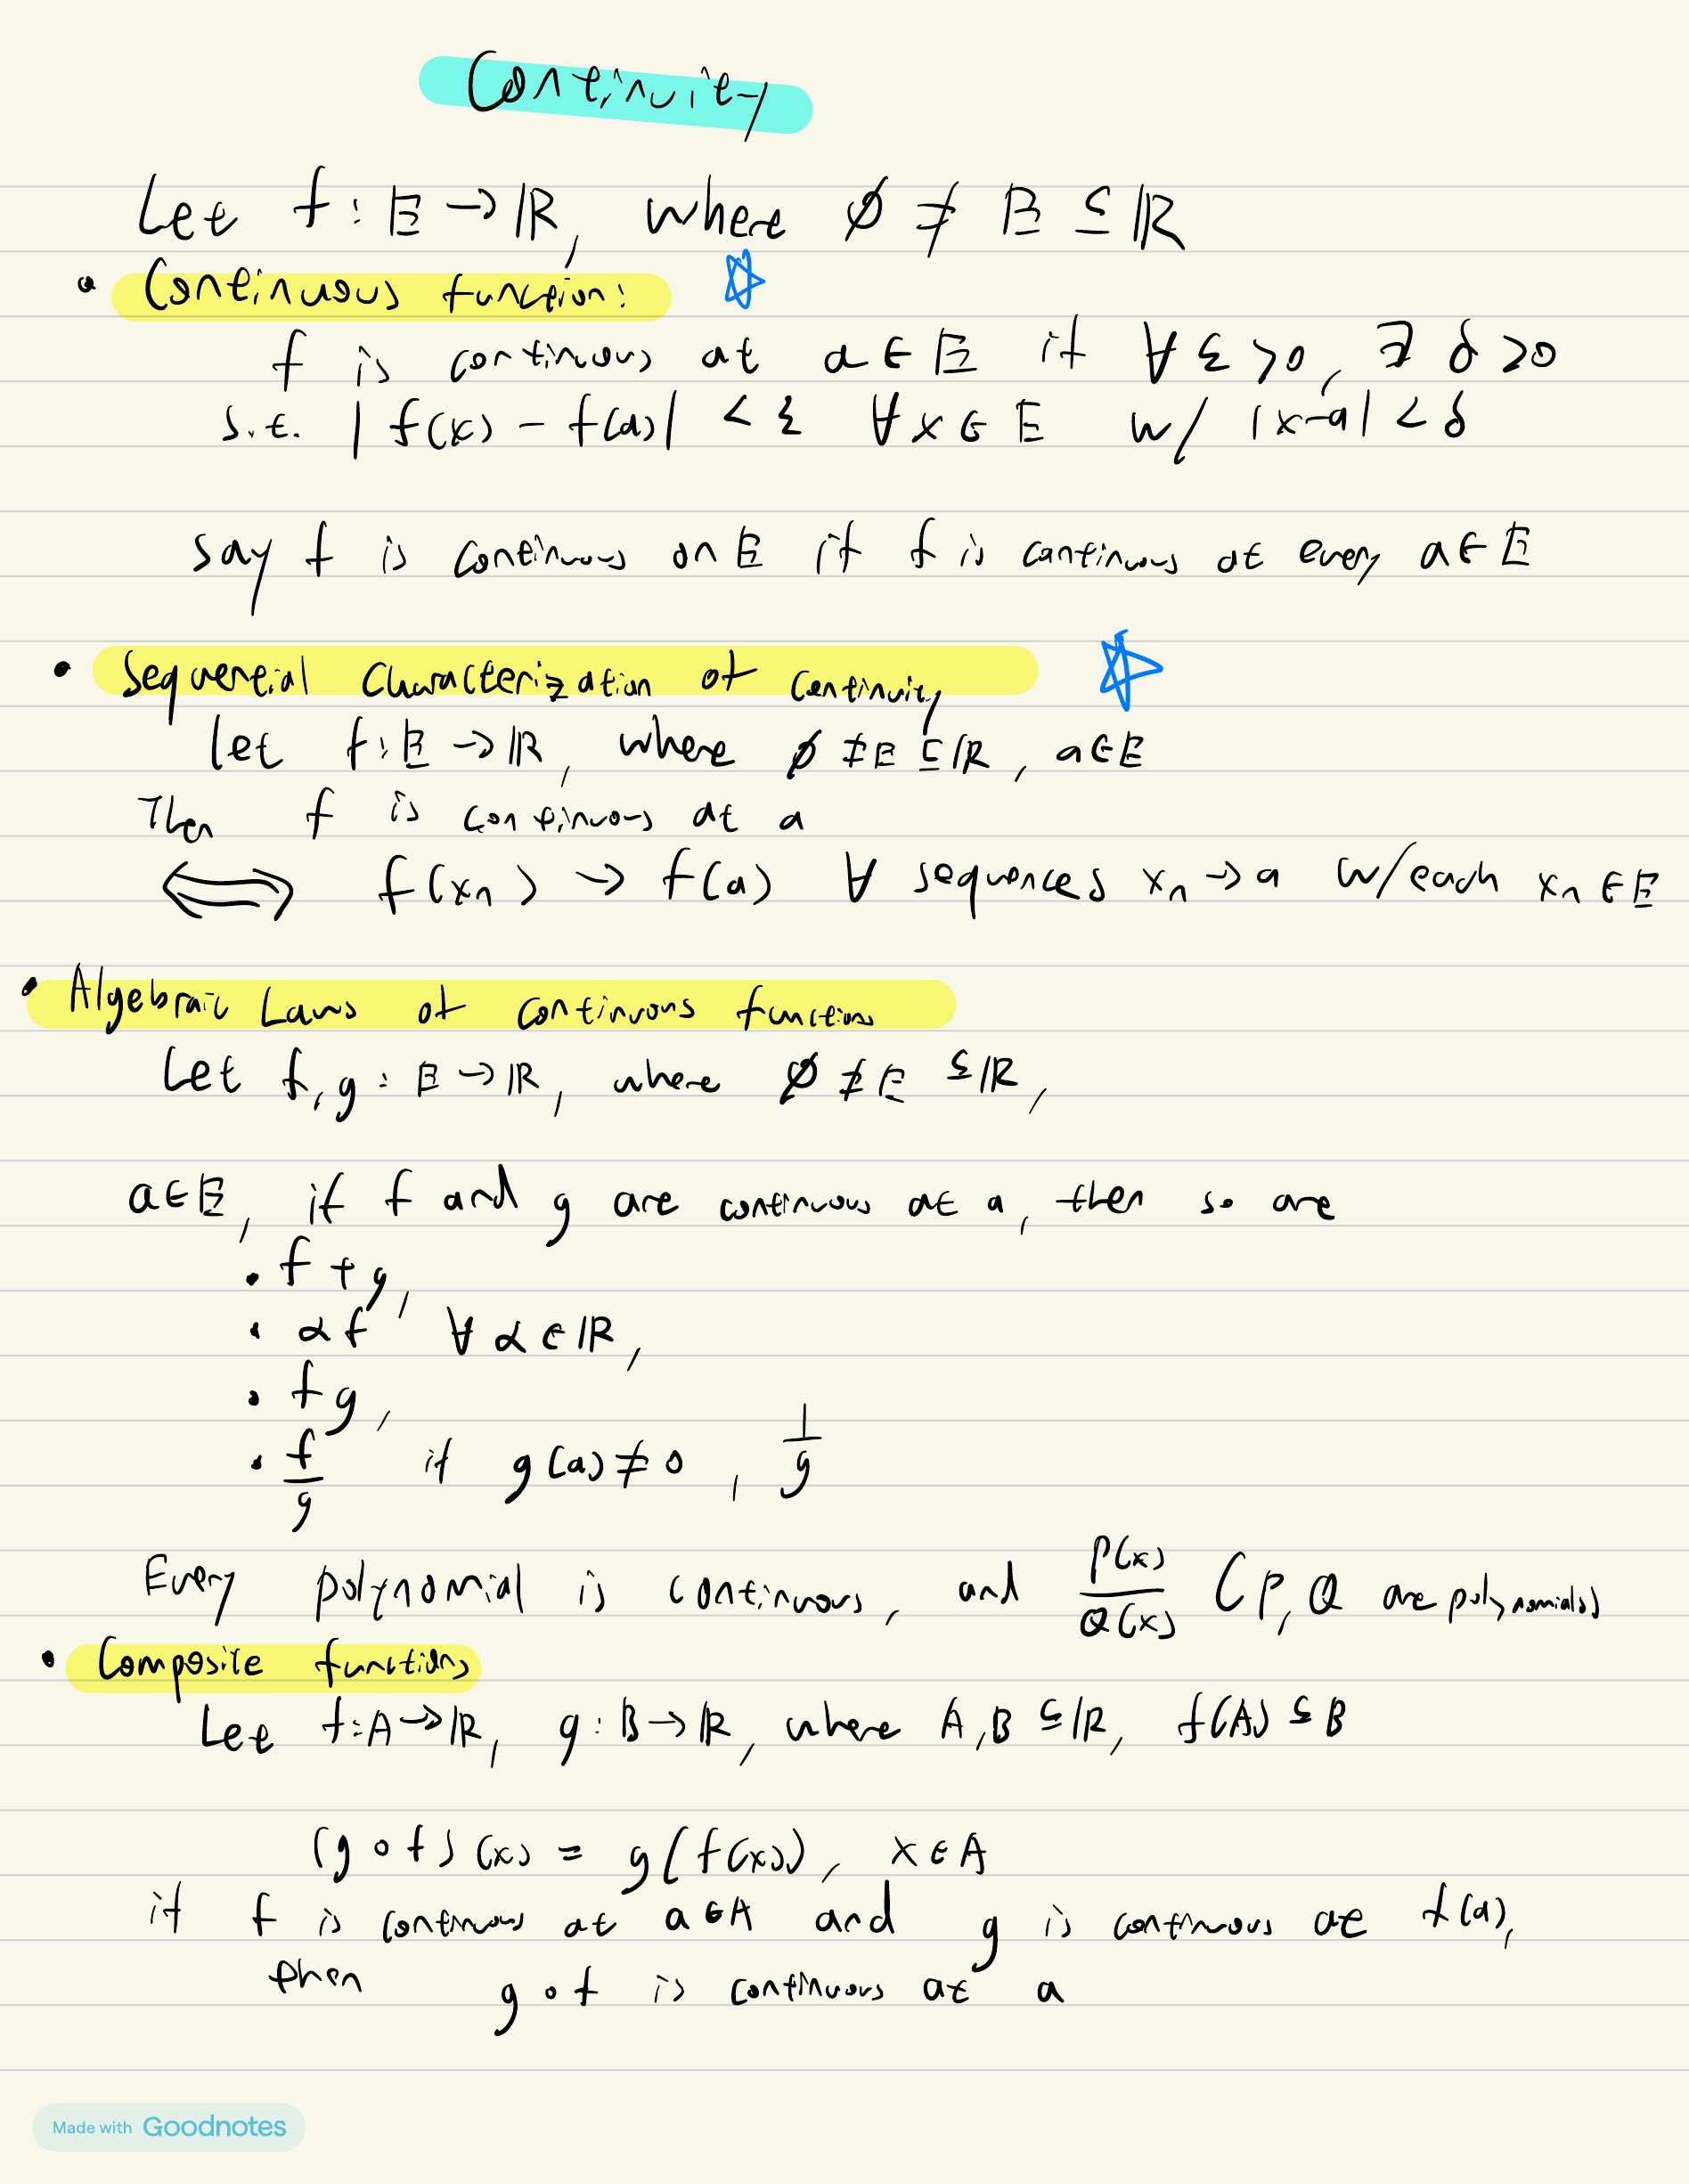 Continuity
Let f : E → ℝ, where ∅ ≠ E ⊆ ℝ
• Continuous function:
f is continuous at a ∈ E if ∀ ε > 0, ∃ δ > 0
s.t. | f(x) − f(a) | < ε ∀ x ∈ E w/ |x−a| < δ
say f is continuous on E if f is continuous at every a ∈ E
• Sequential Characterization of Continuity
let f : E → ℝ, where ∅ ≠ E ⊆ ℝ, a ∈ E
Then f is continuous at a
⟺ f(xₙ) → f(a) ∀ sequences xₙ → a w/ each xₙ ∈ E
• Algebraic Laws of continuous functions
Let f, g : E → ℝ, where ∅ ≠ E ⊆ ℝ,
a ∈ E, if f and g are continuous at a, then so are
• f + g,
• αf, ∀ α ∈ ℝ,
• fg,
• f/g if g(a) ≠ 0, 1/g
Every polynomial is continuous, and P(x)/Q(x) (P, Q are polynomials)
• Composite functions
Let f : A → ℝ, g : B → ℝ, where A, B ⊆ ℝ, f(A) ⊆ B
(g ∘ f)(x) = g(f(x)), x ∈ A
if f is continuous at a ∈ A and g is continuous at f(a),
then g ∘ f is continuous at a
Made with Goodnotes